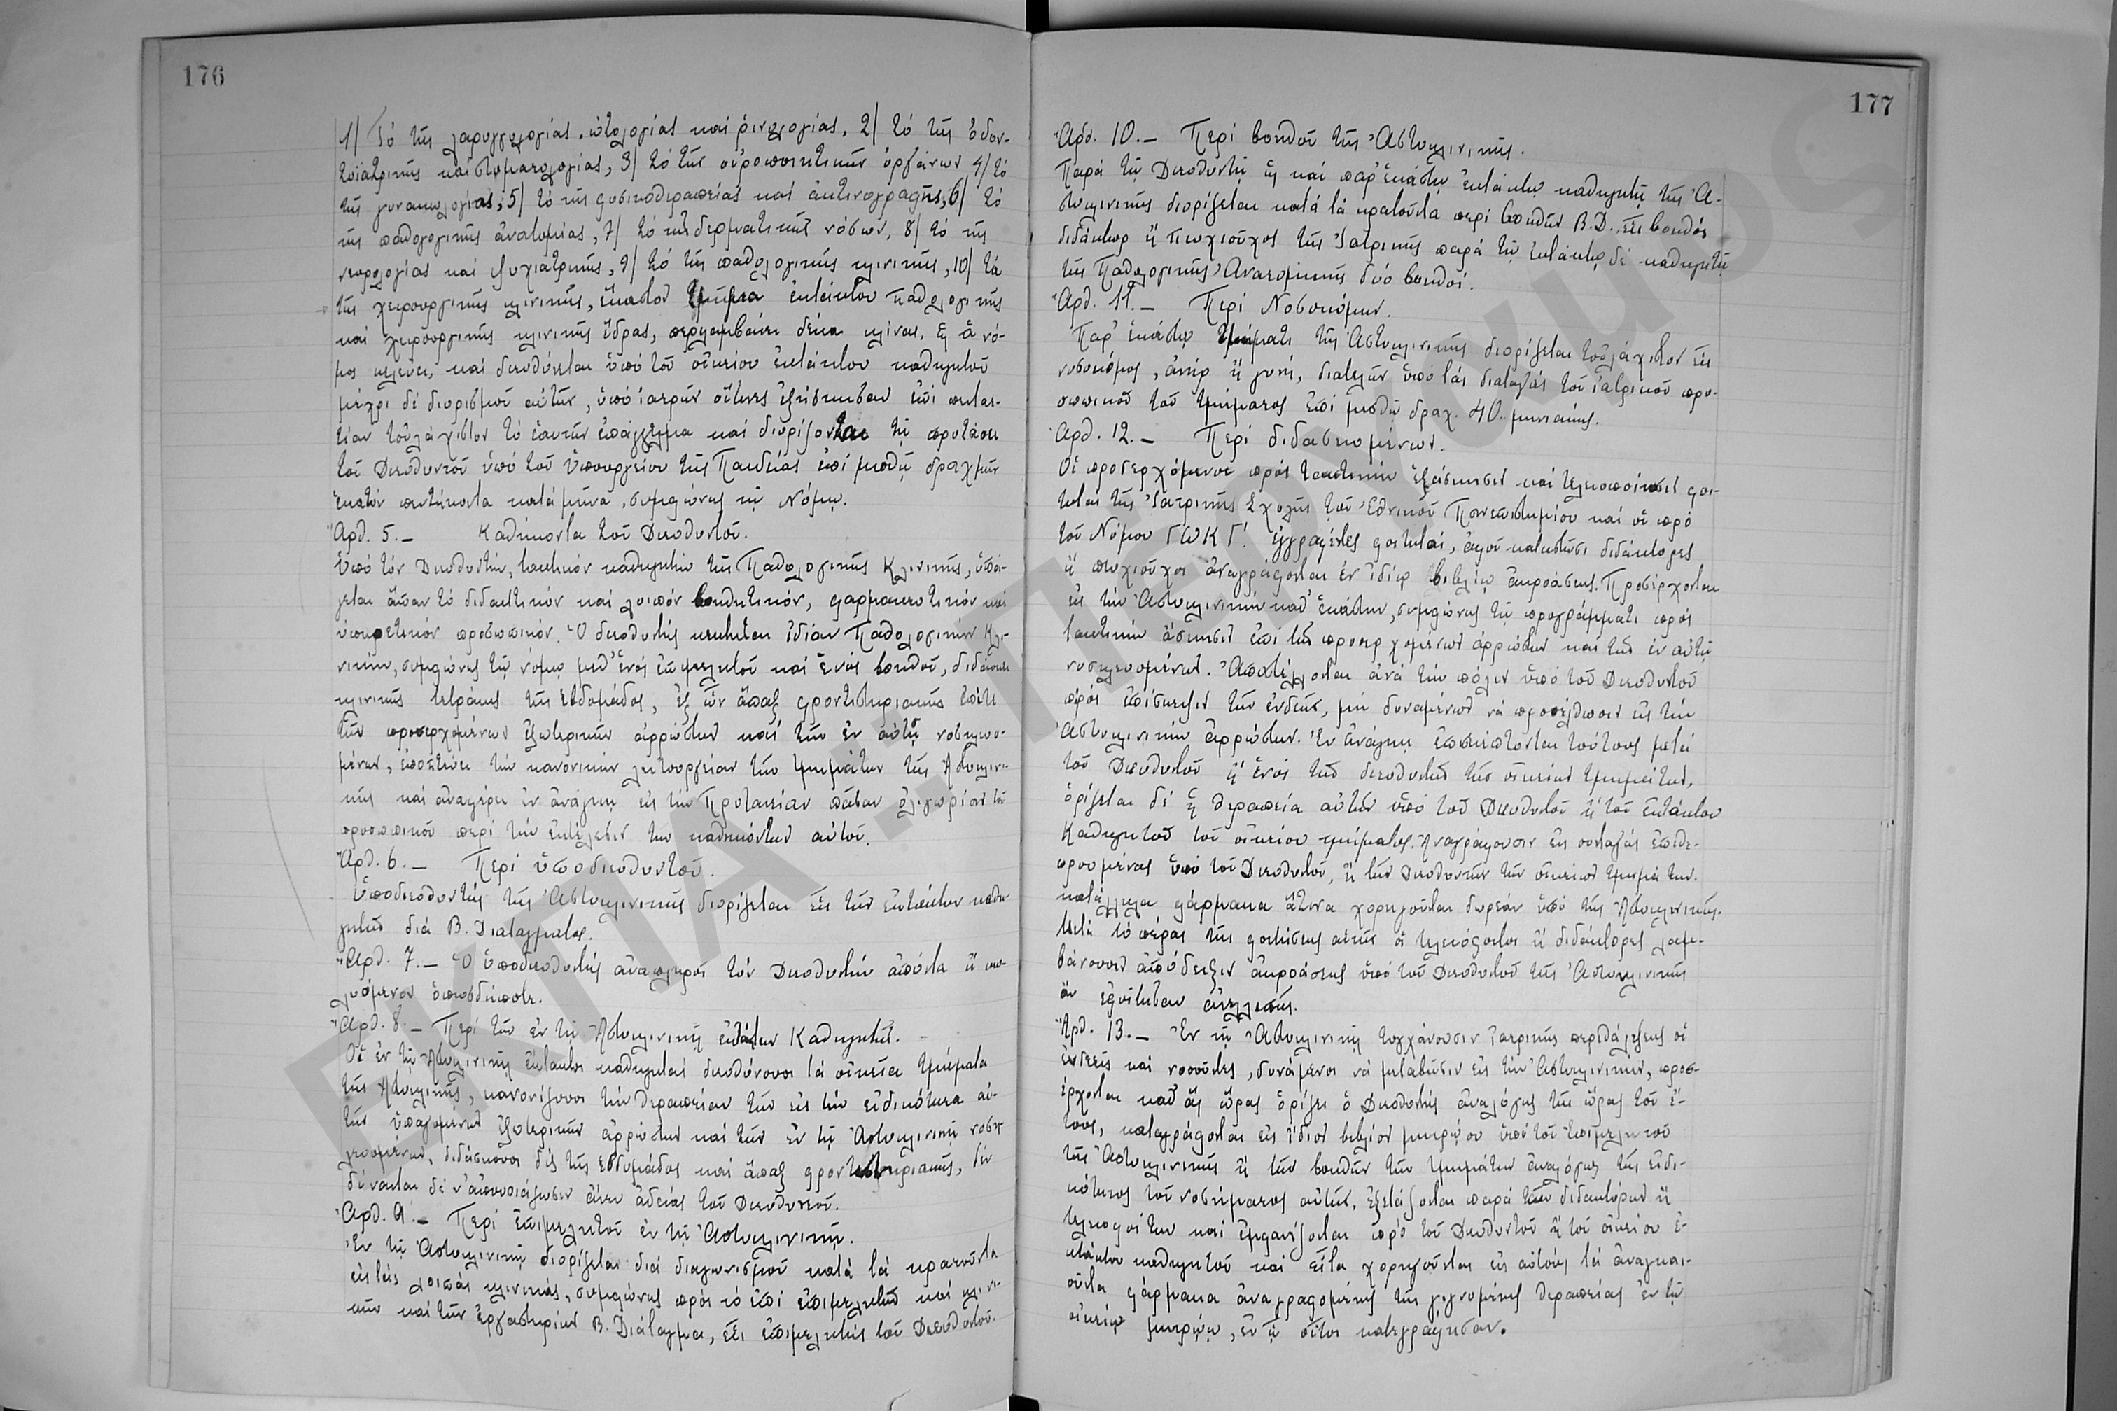 176
1/ Τὸ τῆς λαρυγγολογίας, ὠτολογίας καὶ ῥινολογίας, 2/ τὸ τῆς ὀδον-
τοϊατρικῆς καὶ στοματολογίας, 3/ τὸ τῶν οὐροποιητικῶν ὀργάνων 4/ τὸ
τῆς γυναικολογίας, 5/ τὸ τῆς φυσικοθεραπείας καὶ ἀκτινογραφῆς, 6/ τὸ
τῆς παθολογικῆς ἀνατομίας, 7/ τὸ τῶν δερματικῶν νόσων, 8/ τὸ τῆς
νευρολογίας καὶ ψυχιατρικῆς, 9/ τὸ τῆς παθολογικῆς κλινικῆς, 10/ τὸ
τῆς χειρουργικῆς κλινικῆς, ἕκαστον τμῆμα ἐκτάκτου παθολογικῆς
καὶ χειρουργικῆς κλινικῆς ἕδρας, περιλαμβάνει δέκα κλίνας, ἐφ' ἃ νό-
μος κελεύει, καὶ διευθύνεται ὑπὸ τοῦ οἰκείου ἐκτάκτου καθηγητοῦ
μέχρι δὲ διορισμοῦ αὐτῶν, ὑπὸ ἰατρῶν οἵτινες ἐξήσκησαν ἐπὶ πεντα-
ετίαν τοὐλάχιστον τὸ ἑαυτῶν ἐπάγγελμα καὶ διορίζονται τῇ προτάσει
τοῦ Διευθυντοῦ ὑπὸ τοῦ Ὑπουργείου τῆς Παιδείας ἐπὶ μισθῷ δραχμῶν
ἑκατὸν πεντήκοντα κατὰ μῆνα, συμφώνως τῷ Νόμῳ.
Ἄρθ. 5.– Καθήκοντα τοῦ Διευθυντοῦ.
Ὑπὸ τὸν Διευθυντήν, τακτικὸν καθηγητὴν τῆς Παθολογικῆς Κλινικῆς, ὑπά-
γεται ἅπαν τὸ διδακτικὸν καὶ λοιπὸν βοηθητικόν, φαρμακευτικὸν καὶ
ὑπηρετικὸν προσωπικόν. Ὁ διευθυντὴς κέκτηται ἰδίαν Παθολογικὴν Κλι-
νικήν, συμφώνως τῷ νόμῳ μεθ' ἑνὸς ἐπιμελητοῦ καὶ ἑνὸς βοηθοῦ, διδάσκει
κλινικῶς τετράκις τῆς ἑβδομάδος, ἐξ ὧν ἅπαξ φροντιστηριακῶς ἐπί τε
τῶν προσερχομένων ἐξωτερικῶν ἀρρώστων καὶ τῶν ἐν αὐτῇ νοσηλευο-
μένων, ἐποπτεύει τὴν κανονικὴν λειτουργίαν τῶν τμημάτων τῆς Ἀστυκλινι-
κῆς καὶ ἀναφέρει ἐν ἀνάγκῃ εἰς τὴν Πρυτανείαν πᾶσαν ὀλιγωρίαν τοῦ
προσωπικοῦ περὶ τὴν ἐκτέλεσιν τῶν καθηκόντων αὐτοῦ.
Ἄρθ. 6.– Περὶ ὑποδιευθυντοῦ.
Ὑποδιευθυντὴς τῆς Ἀστυκλινικῆς διορίζεται εἷς τῶν ἐκτάκτων καθη-
γητῶν διὰ Β. Διατάγματος.
Ἄρθ. 7.– Ὁ Ὑποδιευθυντὴς ἀναπληροῖ τὸν Διευθυντὴν ἀπόντα ἢ κω-
λυόμενον ὁπωσδήποτε.
Ἄρθ. 8.– Περὶ τῶν ἐν τῇ Ἀστυκλινικῇ ἐκτάκτων Καθηγητῶν.
Οἱ ἐν τῇ Ἀστυκλινικῇ ἔκτακτοι καθηγηταὶ διευθύνουσι τὰ οἰκεῖα τμήματα
τῆς Ἀστυκλινικῆς, κανονίζουσι τὴν θεραπείαν τῶν εἰς τὴν εἰδικότητα αὐ-
τῶν ὑπαγομένων ἐξωτερικῶν ἀρρώστων καὶ τῶν ἐν τῇ Ἀστυκλινικῇ νοση-
λευομένων, διδάσκουσι δὶς τῆς ἑβδομάδος καὶ ἅπαξ φροντιστηριακῶς, δὲν
δύνανται δὲ ν' ἀπουσιάζωσιν ἄνευ ἀδείας τοῦ Διευθυντοῦ.
Ἄρθ. 9.– Περὶ ἐπιμελητοῦ ἐν τῇ Ἀστυκλινικῇ.
Ἐν τῇ Ἀστυκλινικῇ διορίζεται διὰ διαγωνισμοῦ κατὰ τὰ κρατοῦντα
εἰς τὰς λοιπὰς κλινικάς, συμφώνως πρὸς τὸ ἐπὶ ἐπιμελητῶν καὶ κλινι-
κῶν καὶ τῶν ἐργαστηρίων Β. Διάταγμα, εἷς ἐπιμελητὴς τοῦ Διευθυντοῦ.
177
Ἄρθ. 10.– Περὶ βοηθοῦ τῆς Ἀστυκλινικῆς.
Παρὰ τῷ Διευθυντῇ ὡς καὶ παρ' ἑκάστῳ ἐκτάκτῳ καθηγητῇ τῆς Ἀ-
στυκλινικῆς διορίζεται κατὰ τὰ κρατοῦντα περὶ βοηθῶν Β.Δ., εἷς βοηθός
διδάκτωρ ἢ πτυχιοῦχος τῆς Ἰατρικῆς παρὰ τῷ ἐκτάκτῳ δὲ καθηγητῇ
τῆς Παθολογικῆς Ἀνατομικῆς δύο βοηθοί.
Ἄρθ. 11.– Περὶ Νοσοκόμων.
Παρ' ἑκάστῳ τμήματι τῆς Ἀστυκλινικῆς διορίζεται τοὐλάχιστον εἷς
νοσοκόμος, ἀνὴρ ἢ γυνή, διατελῶν ὑπὸ τὰς διαταγὰς τοῦ ἰατρικοῦ προ-
σωπικοῦ τοῦ τμήματος ἐπὶ μισθῷ δραχ. 40 μηνιαίως.
Ἄρθ. 12.– Περὶ διδασκομένων.
Οἱ προσερχόμενοι πρὸς τακτικὴν ἐξάσκησιν καὶ τελειοποίησιν φοι-
τηταὶ τῆς Ἰατρικῆς Σχολῆς τοῦ Ἐθνικοῦ Πανεπιστημίου καὶ οἱ πρὸ
τοῦ Νόμου ΓΩΚΓ΄ ἐγγραφέντες φοιτηταί, ἀφοῦ καταστῶσι διδάκτορες
ἢ πτυχιοῦχοι ἀναγράφονται ἐν ἰδίῳ βιβλίῳ ἀκροάσεως. Προσέρχονται
εἰς τὴν Ἀστυκλινικὴν καθ' ἑκάστην, συμφώνως τῷ προγράμματι πρὸς
τακτικὴν ἄσκησιν ἐπὶ τῶν προσερχομένων ἀρρώστων καὶ τῶν ἐν αὐτῇ
νοσηλευομένων. Ἀποστέλλονται ἀνὰ τὴν πόλιν ὑπὸ τοῦ Διευθυντοῦ
πρὸς ἐπίσκεψιν τῶν ἐνδεῶν, μὴ δυναμένων νὰ προσέλθωσιν εἰς τὴν
Ἀστυκλινικὴν ἀρρώστων. Ἐν ἀνάγκῃ ἐπισκέπτονται τούτους μετὰ
τοῦ Διευθυντοῦ ἢ ἑνὸς τῶν διευθυντῶν τῶν οἰκείων τμημάτων,
ὁρίζεται δὲ ἡ θεραπεία αὐτῶν ὑπὸ τοῦ Διευθυντοῦ ἢ τοῦ ἐκτάκτου
Καθηγητοῦ τοῦ οἰκείου τμήματος. Ἀναγράφουσιν εἰς συνταγὰς ἐπιθε-
ωρουμένας ὑπὸ τοῦ Διευθυντοῦ, ἢ τῶν Διευθυντῶν τῶν οἰκείων τμημάτων.
κατάλληλα φάρμακα ἅτινα χορηγοῦνται δωρεὰν ὑπὸ τῆς Ἀστυκλινικῆς.
Μετὰ τὸ πέρας τῆς φοιτήσεως αὐτῶν οἱ τελειόφοιτοι ἢ διδάκτορες λαμ-
βάνουσιν ἀπόδειξιν ἀκροάσεως ὑπὸ τοῦ Διευθυντοῦ τῆς Ἀστυκλινικῆς
ἂν ἐφοίτησαν ἀνελλιπῶς.
Ἄρθ. 13.– Ἐν τῇ Ἀστυκλινικῇ τυγχάνουσιν ἰατρικῆς περιθάλψεως οἱ
ἐνδεεῖς καὶ νοσοῦντες, δυνάμενοι νὰ μεταβῶσιν εἰς τὴν Ἀστυκλινικήν, προσ-
έρχονται καθ' ἃς ὥρας ὁρίζει ὁ Διευθυντὴς ἀναλόγως τῆς ὥρας τοῦ ἔ-
τους, καταγράφονται εἰς ἴδιον βιβλίον μητρῴου ὑπὸ τοῦ ἐπιμελητοῦ
τῆς Ἀστυκλινικῆς ἢ τῶν βοηθῶν τῶν τμημάτων ἀναλόγως τῆς εἰδι-
κότητος τοῦ νοσήματος αὐτῶν, ἐξετάζονται παρὰ τῶν διδακτόρων ἢ
τελειοφοίτων καὶ ἐμφανίζονται πρὸ τοῦ Διευθυντοῦ ἢ τοῦ οἰκείου ἐ-
κτάκτου καθηγητοῦ καὶ εἶτα χορηγοῦνται εἰς αὐτοὺς τὰ ἀναγκαι-
οῦντα φάρμακα ἀναγραφομένης τῆς γιγνομένης θεραπείας ἐν τῷ
οἰκείῳ μητρῴῳ, ἐν ᾧ οὗτοι κατεγράφησαν.
ΕΚΠΑ